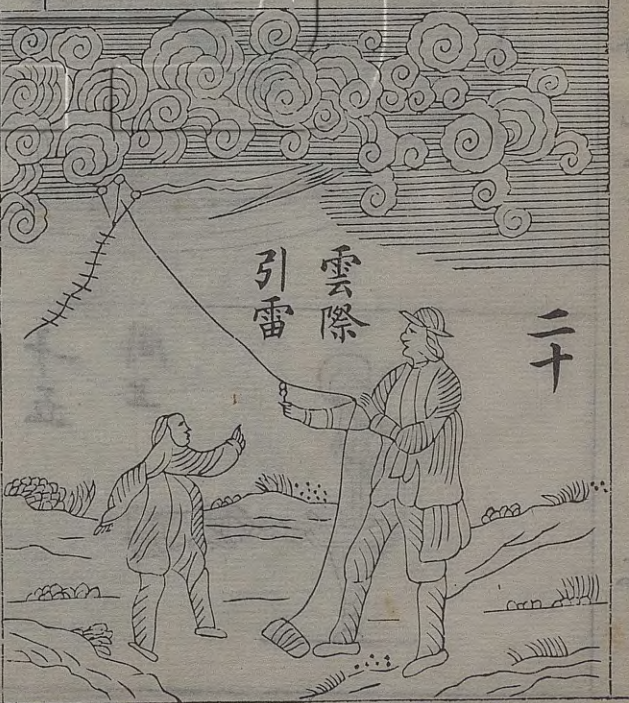 二十
雲際
引雷